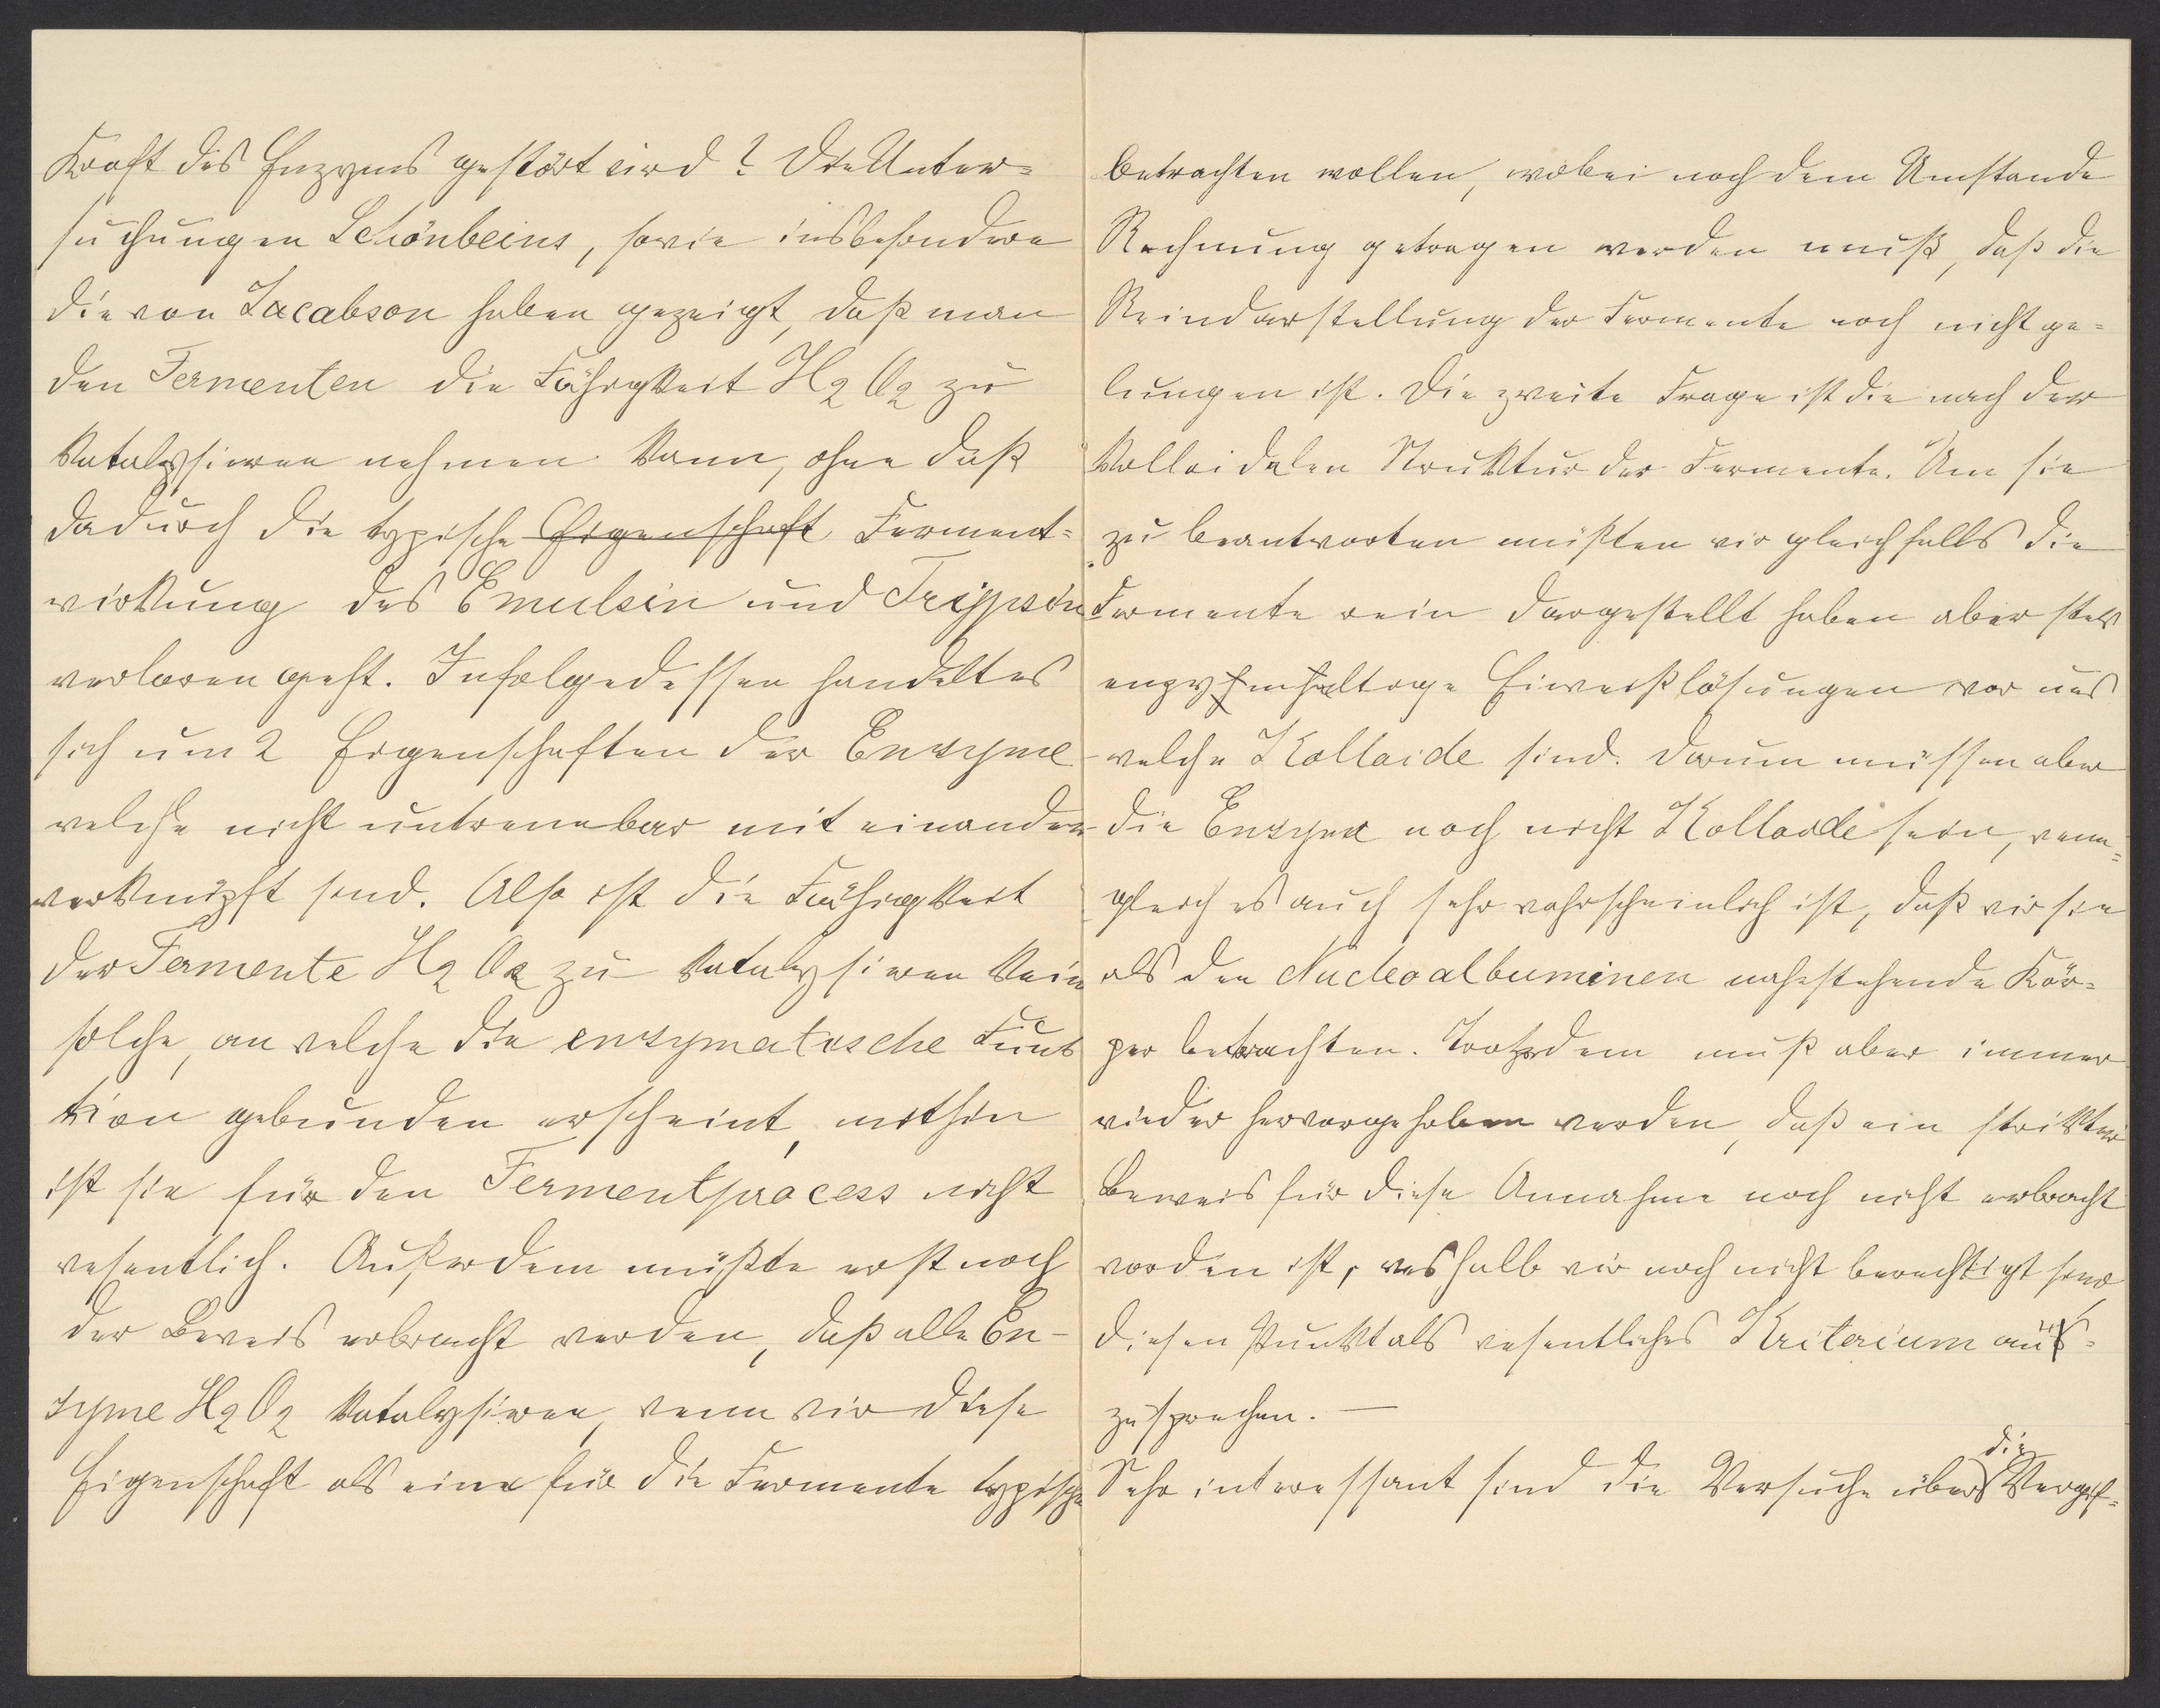 Kraft des Enzyms gestört wird? Die Unter-
suchungen Schönbeins, sowie insbesondere
die von Jacobson haben gezeigt, daß man
den Fermenten die Fähigkeit H2O2 zu
katalysieren nehmen kann, ohne daß
dadurch die typische Eigenschaft Ferment-
wirkung des Emulsin und Trypsin
verloren geht. Infolgedessen handelt es
sich um 2 Eigenschaften der Enzyme
welche nicht untrennbar mit einander
verknüpft sind. Also ist die Fähigkeit
der Fermente H2O2 zu katalysieren kein
solche, an welche die enzymatische Funk
tion gebunden erscheint, mithin
ist sie für den Fermentprocess nicht
wesentlich. Außerdem müßte erst noch
der Beweis erbracht werden, daß alle En-
zyme H2O2 katalysieren, wenn wir diese
Eigenschaft als eine für die Fermente typische
betrachten wollen, wobei noch dem Umstande
Rechnung getragen werden muß, daß die
Reindarstellung der Fermente noch nicht ge-
lungen ist. Die zweite Frage ist die nach der
kolloidalen Struktur der Fermente. Um sie
zu beantworten müßten wir gleichfalls die
Fermente rein dargestellt haben aber stets
enzymhaltige Eiweißlösungen vor uns
welche Kolloide sind. Darum müssen aber
die Enzyme noch nicht Kolloide sein, wenn-
gleich es auch sehr wahrscheinlich ist, daß wir sie
als den Nucleoalbuminen nahestehende Kör-
per betrachten. Trotzdem muß aber immer
wieder hervorgehoben werden, daß ein strikter
Beweis für diese Annahme noch nicht erbracht
worden ist, weshalb wir noch nicht berechtigt sind
diesen Punkt als wesentliches Kriterium aus-
zusprechen. —
Sehr interessant sind die Versuche über die Vergif-